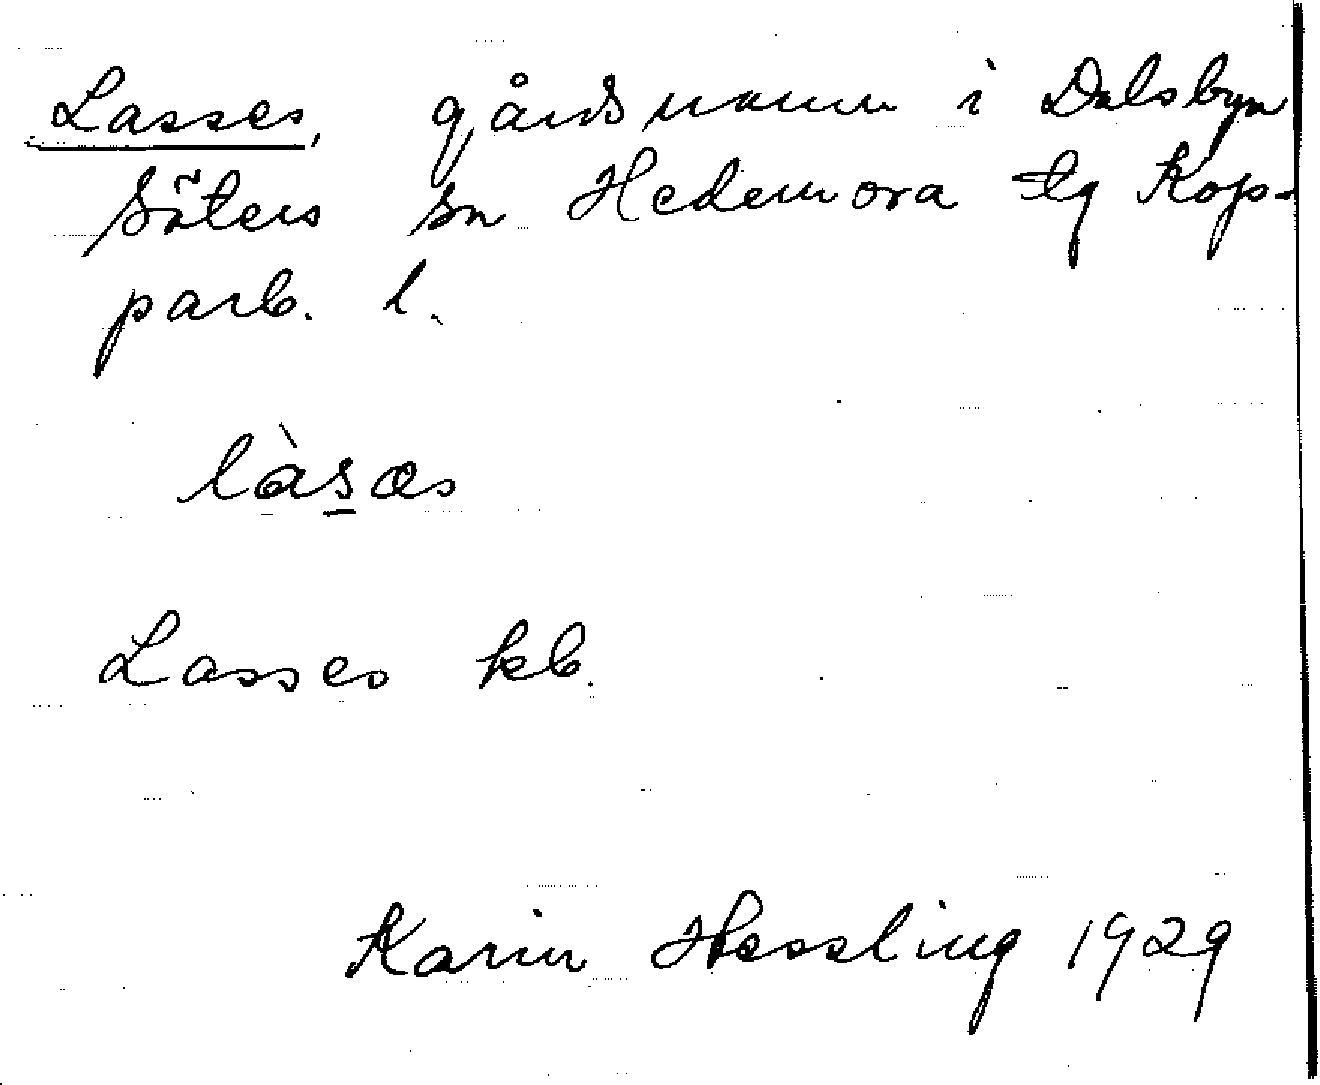 Lasses, gårdsnamn i Dalsbyn
Säters sn Hedemora tg Kop-
parb. l.
làs̲æs
Lasses kb.
Karin Hessling 1929